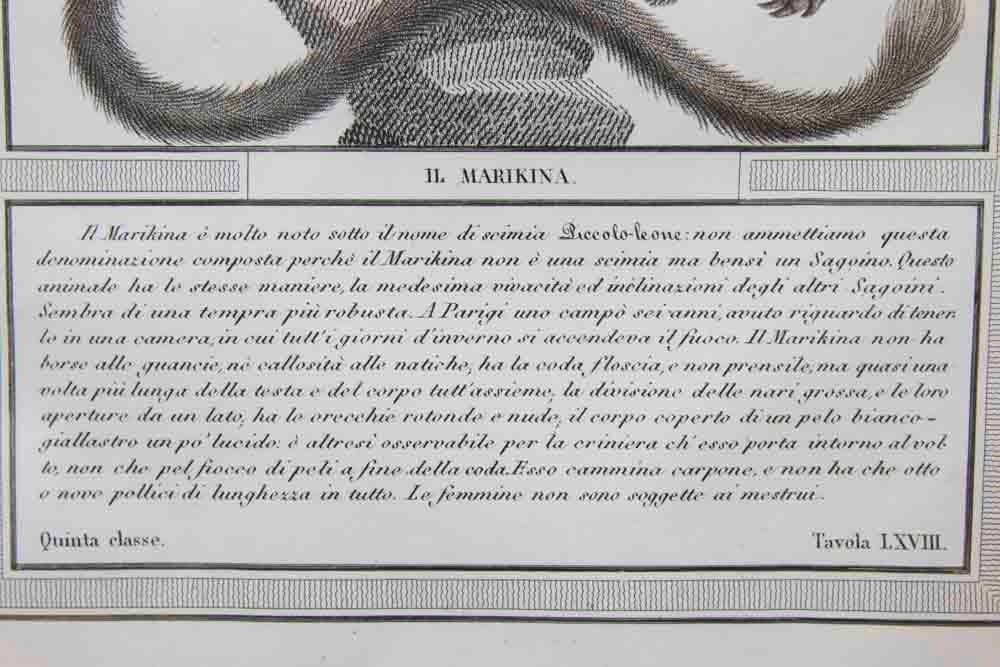 IL MARIKINA.
Il Marikina è molto noto sotto il nome di scimia Piccolo-leone: non ammettiamo questa
denominazione composta perché il Marikina non è una scimia ma bensì un Sagoino. Questo
animale ha le stesse maniere, la medesima vivacità ed inclinazioni degli altri Sagoini.
Sembra di una tempra più robusta. A Parigi uno campò sei anni, avuto riguardo di tener-
lo in una camera, in cui tutt'i giorni d'inverno si accendeva il fuoco. Il Marikina non ha
borse alle guancie, né callosità alle natiche, ha la coda floscia, e non prensile, ma quasi una
volta più lunga della testa e del corpo tutt'assieme, la divisione delle nari grossa, e le loro
aperture da un lato, ha le orecchie rotonde e nude, il corpo coperto di un pelo bianco-
giallastro un po' lucido: è altresì osservabile per la criniera ch'esso porta intorno al vol-
to, non che pel fiocco di peli a fine della coda. Esso cammina carpone, e non ha che otto
o nove pollici di lunghezza in tutto. Le femmine non sono soggette ai mestrui.
Quinta classe. Tavola LXVIII.